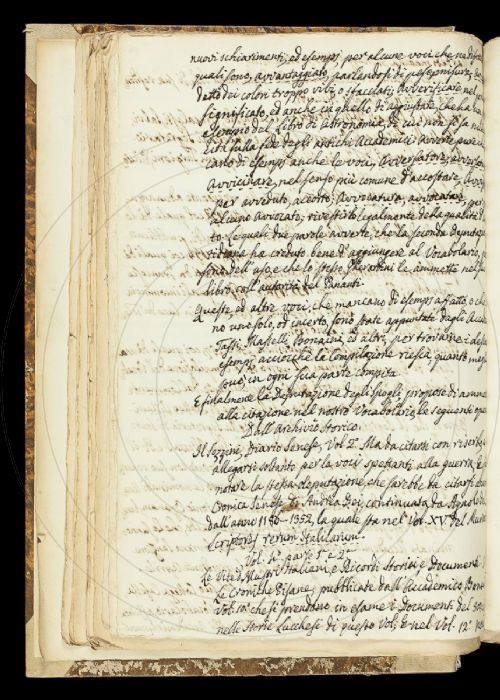 nuovi schiarimenti, ed esempi per alcune voci che ne difett
quali sono, avvantaggiato, parlandosi di pesi e misure,
detto dei colori troppo vivi o staccati, avverificare nel
significato, ed anche in quello di aggiustare, che ha
esempio del Libro di Astronomia, di cui non si fa
sulla fede degli antichi Accademici: avverte pure
cano di esempi anche le voci, Avversatore,
Avvicinare, nel senso più comune d'accostare,
per avveduto, accorto; Avvocatura, avvocatare, per
alcuno Avvocato, rivestirlo legalmente della qualità d
to. Le quali due parole avverte, che la seconda deputaz
ha creduto bene d'aggiungere al Vocabolario,
dell'uso, e che lo stesso Gherardini le ammette nel
libro, coll'autorità del Pananti.
Queste, ed altre voci, che mancano di esempi affatto, o che
no uno solo, od incerto, sono state appuntate dagli Accad
Tassi, Maselli, ed altri, per trovarne i
esempi acciocchè la Compilazione riesca, quanto
in ogni sua parte compita.
E finalmente la Deputazione degli Spogli propose di amme
alla citazione nel nostro Vocabolario le seguenti ope
Dall'Archivio Storico.
Il Sozzini, Diario Senese, Vol. 2º Ma da citarsi con riserb
allegarsi soltanto per la voci spettanti alla guerra:
notare la stessa deputazione, che sarebbe da citarsi
Cronica Senese di Andrea Dei, continuata da Agnolo
dall'anno 1186-1352, la quale sta nel Vol. XV. del Mura
Scriptores rerum Italicarum.
Vol. 4º parte 1ª e 2ª
Le Vite d'Illustri Italiani, e Ricordi Storici e Documenti
Le Croniche Pisane, pubblicate dall'Accademico Bona
Vol. 10º che si prendono in esame i Documenti del
nelle Storie Lucchesi di questo Vol; e nel Vol. 12º